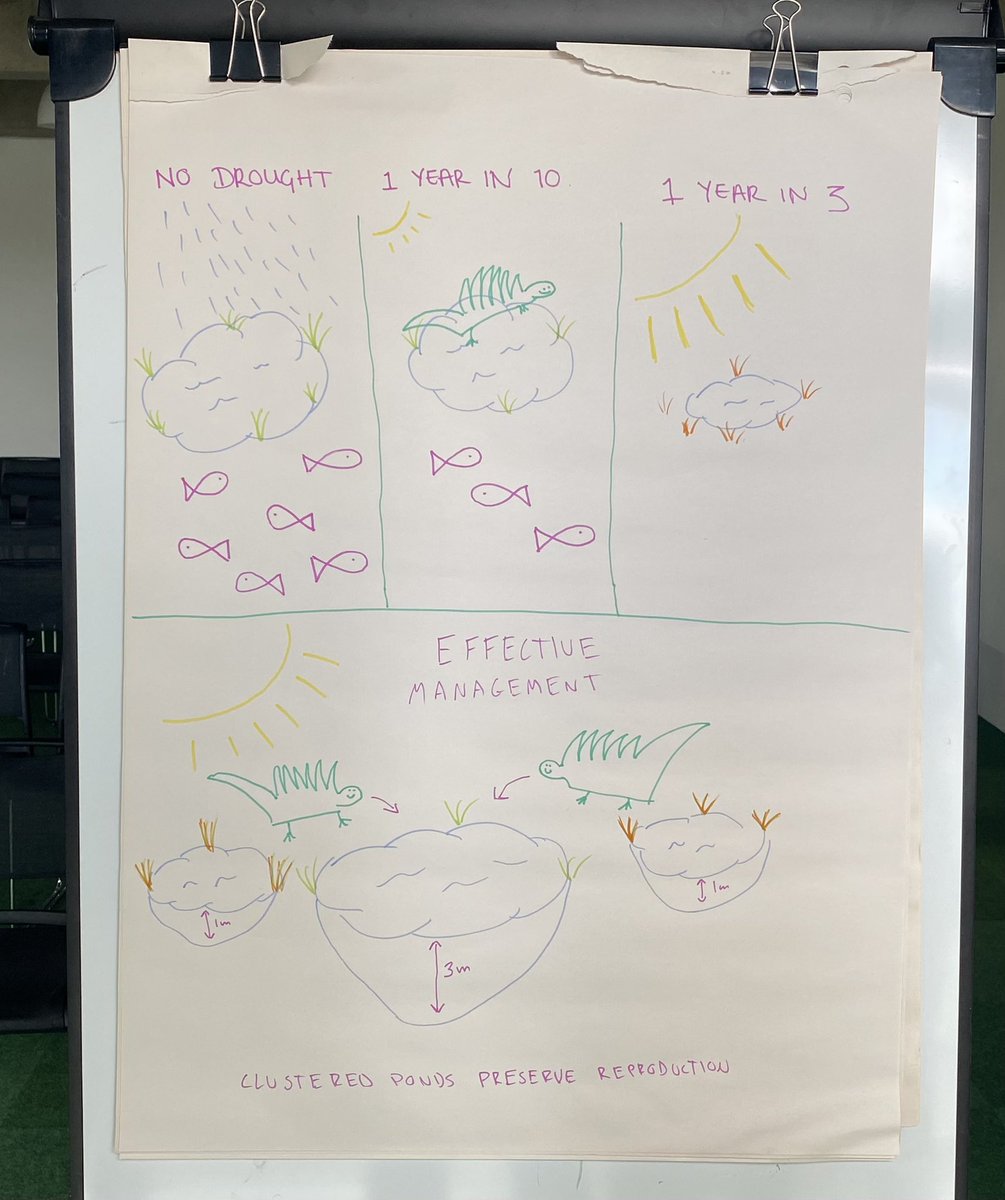 NO DROUGHT
1 YEAR IN 10
1 YEAR IN 3
EFFECTIVE
MANAGEMENT
1m
3m
1m
CLUSTERED PONDS PRESERVE REPRODUCTION